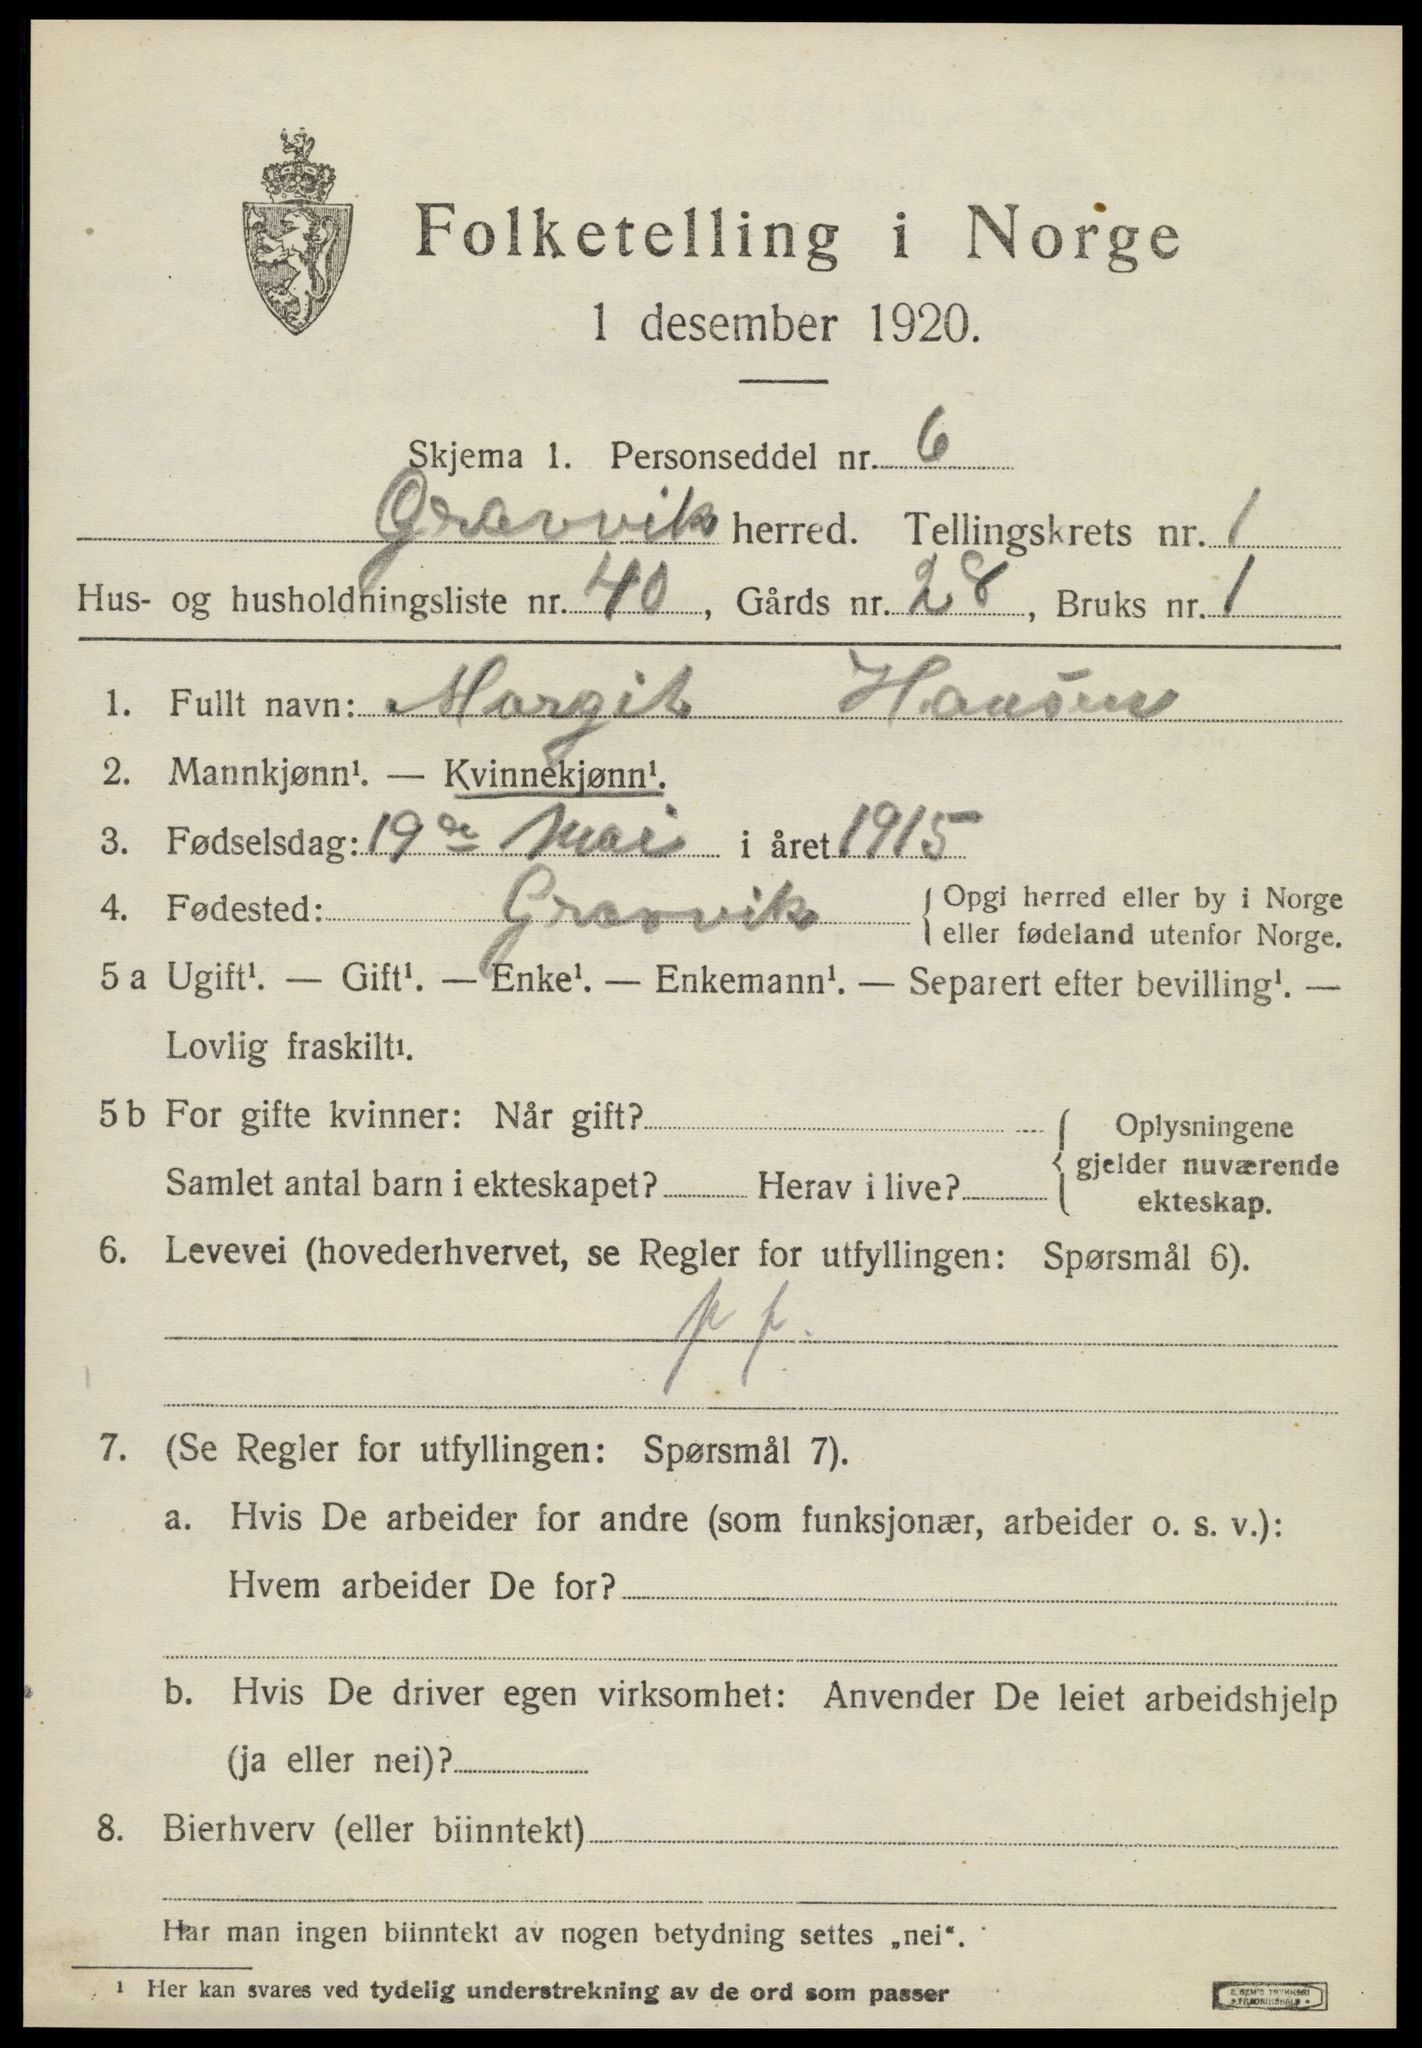 Folketelling i Norge
1 desember 1920.
Skjema 1. Personseddel nr. 6
Gravvik herred. Tellingskrets nr. 1
Hus- og husholdningsliste nr. 40, Gårds nr. 28, Bruks nr. 1
1. Fullt navn: Margit Hansen
2. Mannkjønn¹. — Kvinnekjønn¹.
3. Fødselsdag: 19de Mai i året 1915
4. Fødested: Gravvik { Opgi herred eller by i Norge
eller fødeland utenfor Norge.
5 a Ugift¹. — Gift¹. — Enke¹. — Enkemann¹. — Separert efter bevilling¹. —
Lovlig fraskilt¹.
5 b For gifte kvinner: Når gift? { Oplysningene
gjelder nuværende
Samlet antal barn i ekteskapet? Herav i live?
ekteskap.
6. Levevei (hovederhvervet, se Regler for utfyllingen: Spørsmål 6).
p p.
7. (Se Regler for utfyllingen: Spørsmål 7).
a. Hvis De arbeider for andre (som funksjonær, arbeider o. s. v.):
Hvem arbeider De for?
b. Hvis De driver egen virksomhet: Anvender De leiet arbeidshjelp
(ja eller nei)?
8. Bierhverv (eller biinntekt)
Har man ingen biinntekt av nogen betydning settes „nei“.
¹ Her kan svares ved tydelig understrekning av de ord som passer